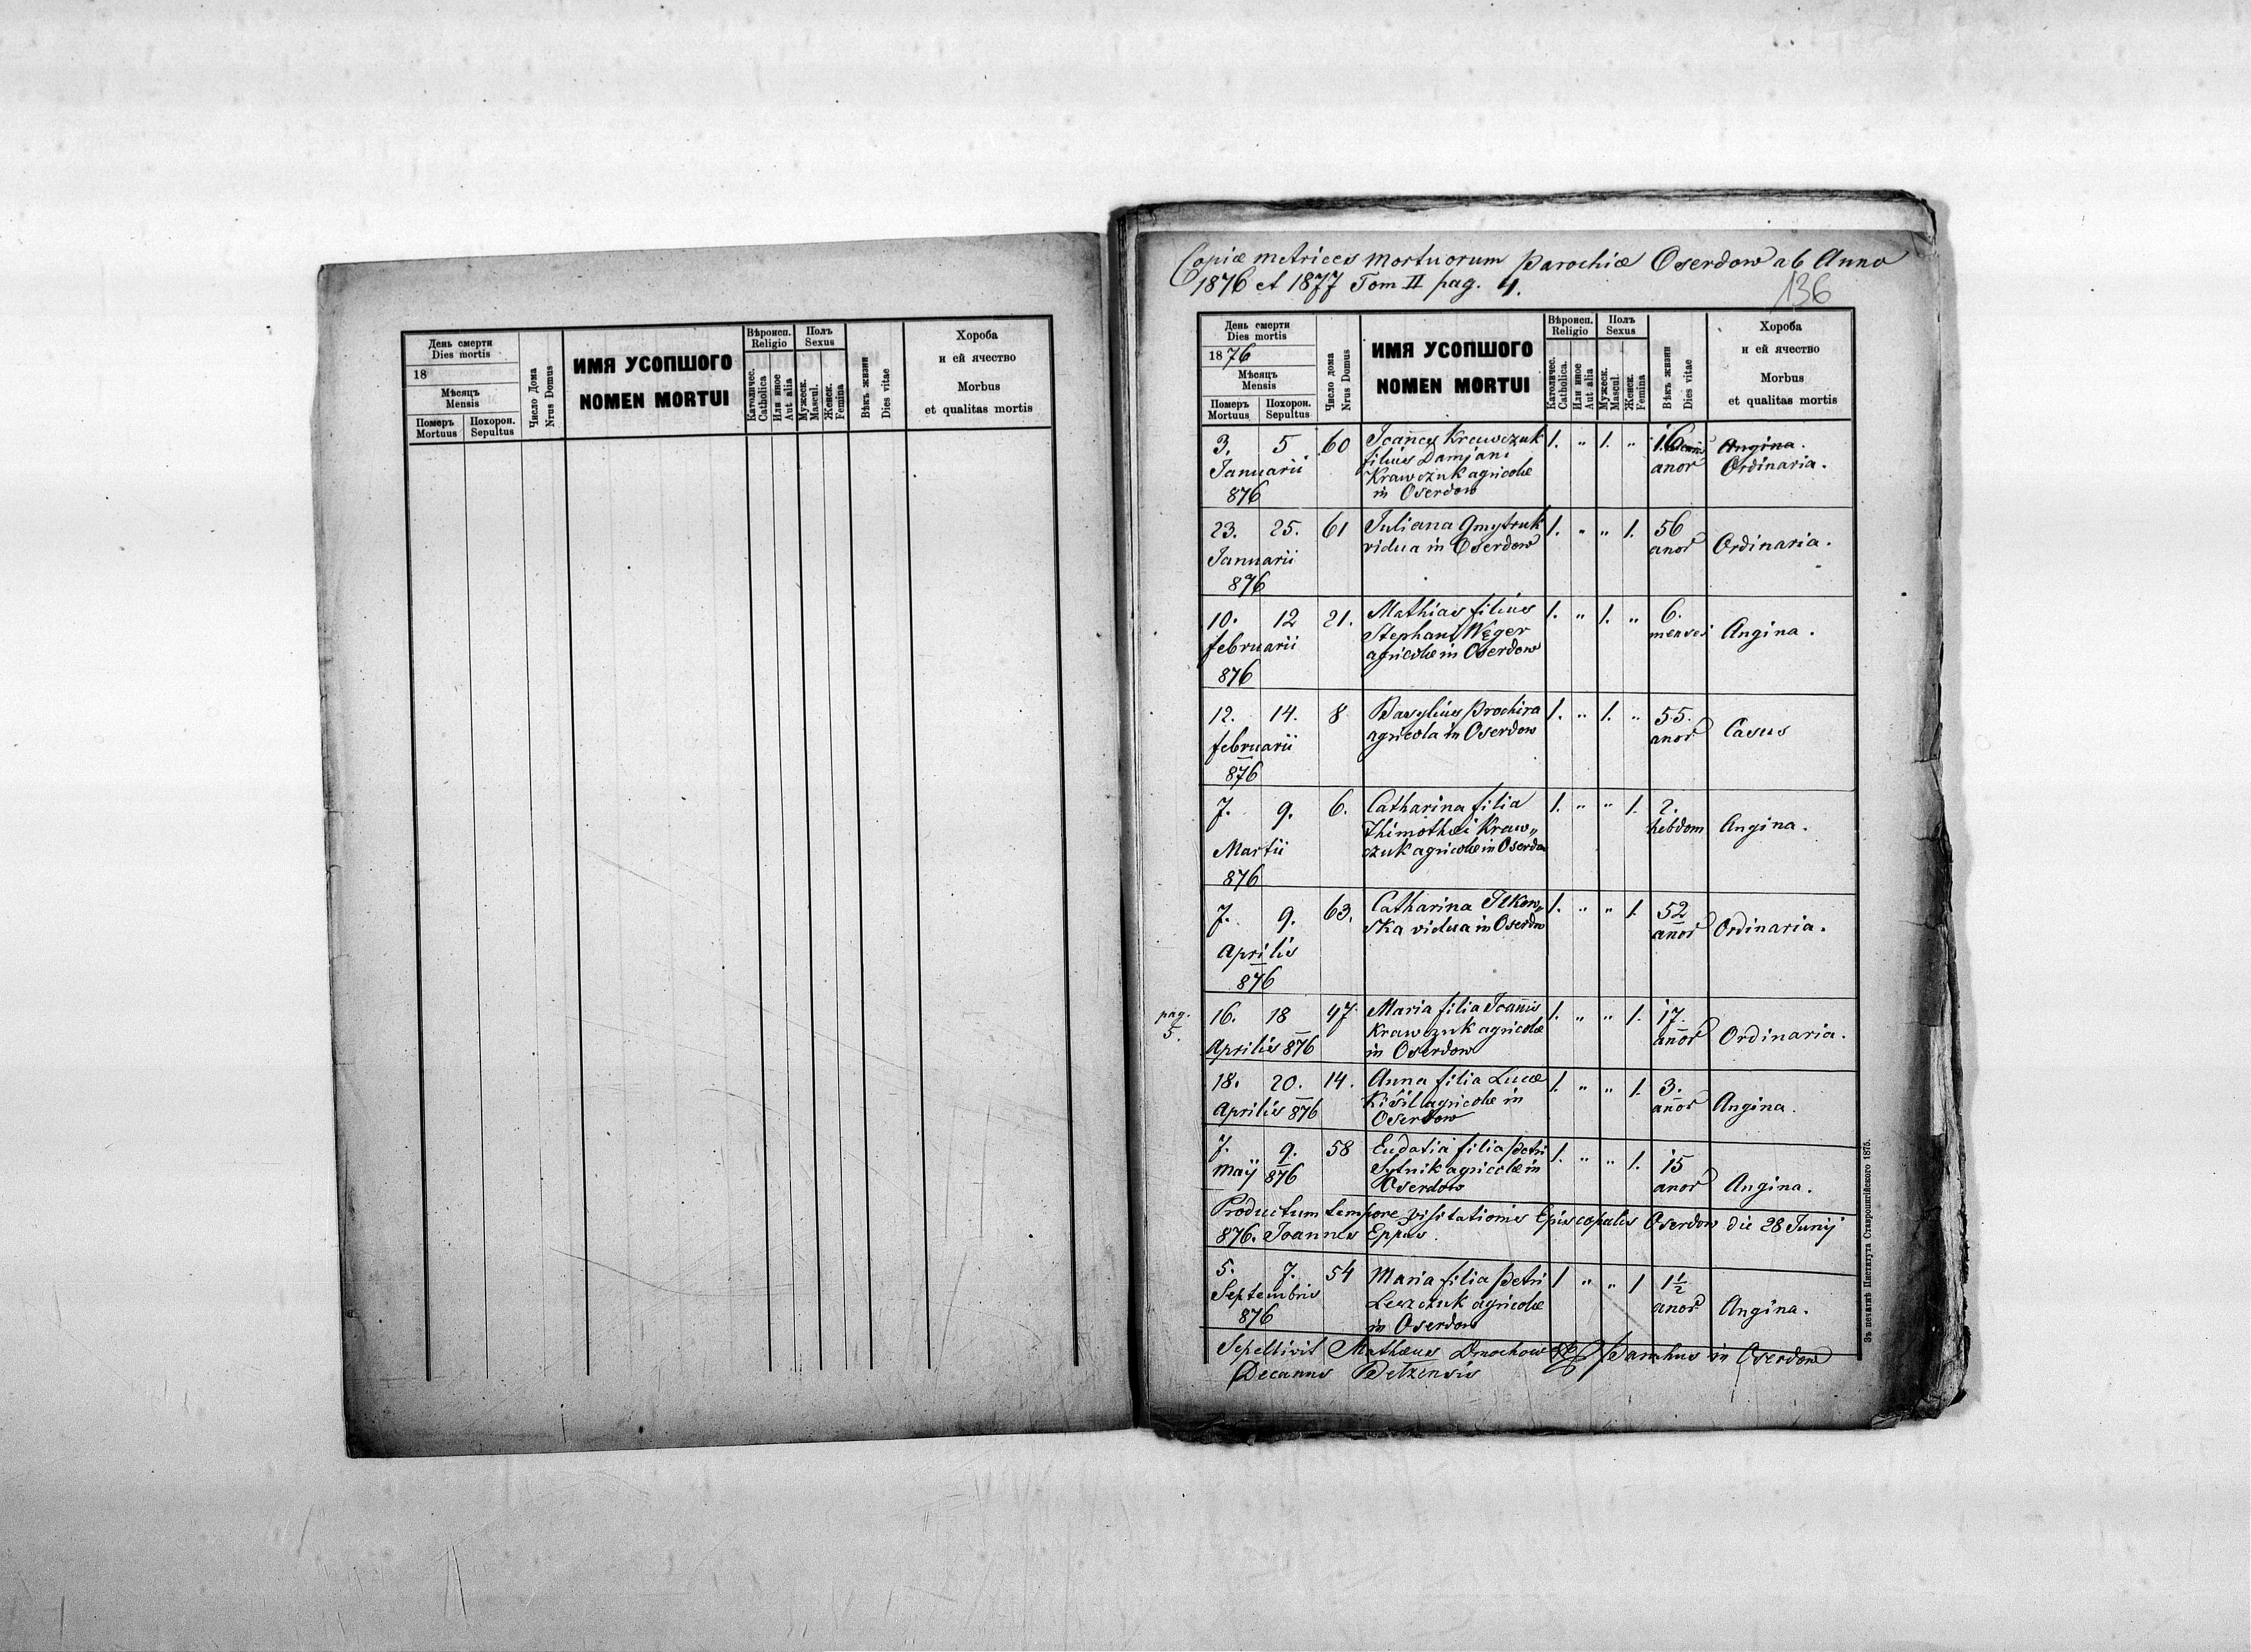 День смерти
Dies mortis
18
Мѣсяцъ
Mensis
Померъ
Mortuus
Похорон.
Sepultus
Число Дома
Nrus Domus
ИМЯ УСОПШОГО
NOMEN MORTUI
Вѣроисп.
Religio
Католичес.
Catholica
Или иное
Aut alia
Полъ
Sexus
Мужеск.
Mascul.
Женск.
Femina
Вѣкъ жизни
Dies vitae
Хороба
и ей ячество
Morbus
et qualitas mortis
Copiæ metrices mortuorum parochiæ Oserdow ab Anno
1876 et 1877 Tom II pag. 4.
136
День смерти
Dies mortis
1876
Мѣсяцъ
Mensis
Померъ
Mortuus
Похорон.
Sepultus
Число дома
Nrus Domus
ИМЯ УСОПШОГО
NOMEN MORTUI
Вѣроисп.
Religio
Католичес.
Catholica.
Или иное
Aut alia
Полъ
Sexus
Мужеск.
Mascul.
Женск.
Femina
Вѣкъ жизни
Dies vitae
Хороба
и ей ячество
Morbus
et qualitas mortis
3. 5 60 Joañes Krawczuk 1. " 1. " 16 Angina.
Januarii filius Damjani anor Ordinaria.
Krawczuk agricolæ
876 in Oserdow
23. 25. 61 Juliana Gmytruk 1. " " 1. 56
Januarii vidua in Oserdow anor Ordinaria.
876
10. 12 21. Mathias filius 1. " 1. " 6.
februarii Stephani Węger menses Angina.
agricolæ in Oserdow
876
12. 14. 8 Basylius Prochira 1. " 1. " 55.
februarii agricola in Oserdow anor Casus
876
7. 9. 6. Catharina filia 1. " " 1. 2.
Thimothei Kraw„ hebdom Angina.
Martii czuk agricolæ in Oserdow
876
7. 9. 63. Catharina Ilkow„ 1. " " 1. 52
ska vidua in Oserdow añor Ordinaria.
Aprilis
876
pag.
5.
16. 18 47 Maria filia Joañis 1. " " 1. 17.
Krawczuk agricolæ añor Ordinaria.
Aprilis 876 in Oserdow
18. 20. 14. Anna filia Lucæ 1. " " 1. 3.
Aprilis 876 Kiśil agricolæ in añor Angina.
Oserdow
7. 9. 58 Eudatia filia Petri 1. " " 1. 15
Maij 876 Sytnik agricolæ in anor Angina.
Oserdow
Productum tempore visitationis Episcopalis Oserdow die 28 Junij
876. Joannes Eppus.
5. 7. 54 Maria filia Petri 1 " " 1 1½
Septembris Leszczuk agricolæ anor Angina.
876 in Oserdow
Sepelivit Mathæus Dmochow Parochus in Oserdow
Decanus Belzensis
Зъ печатнѣ Института Ставропигійского 1875.